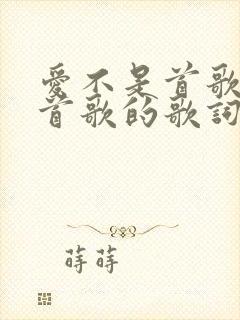 愛不是首歌
首歌的歌詞
蒔蒔